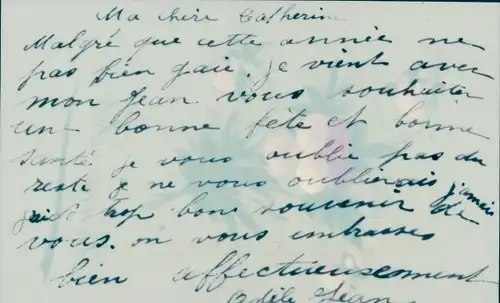 Ma chère Catherine
Malgré que cette année ne
pas bien gaie. je vient avec
mon Jean vous souhaiter
un bonne fête et bonne
santé. je vous oublie pas du
reste je ne vous oublierais jamais
j'ai trop bon souvenir de
vous. on vous embrasses
bien affectueusement
Adèle Jean